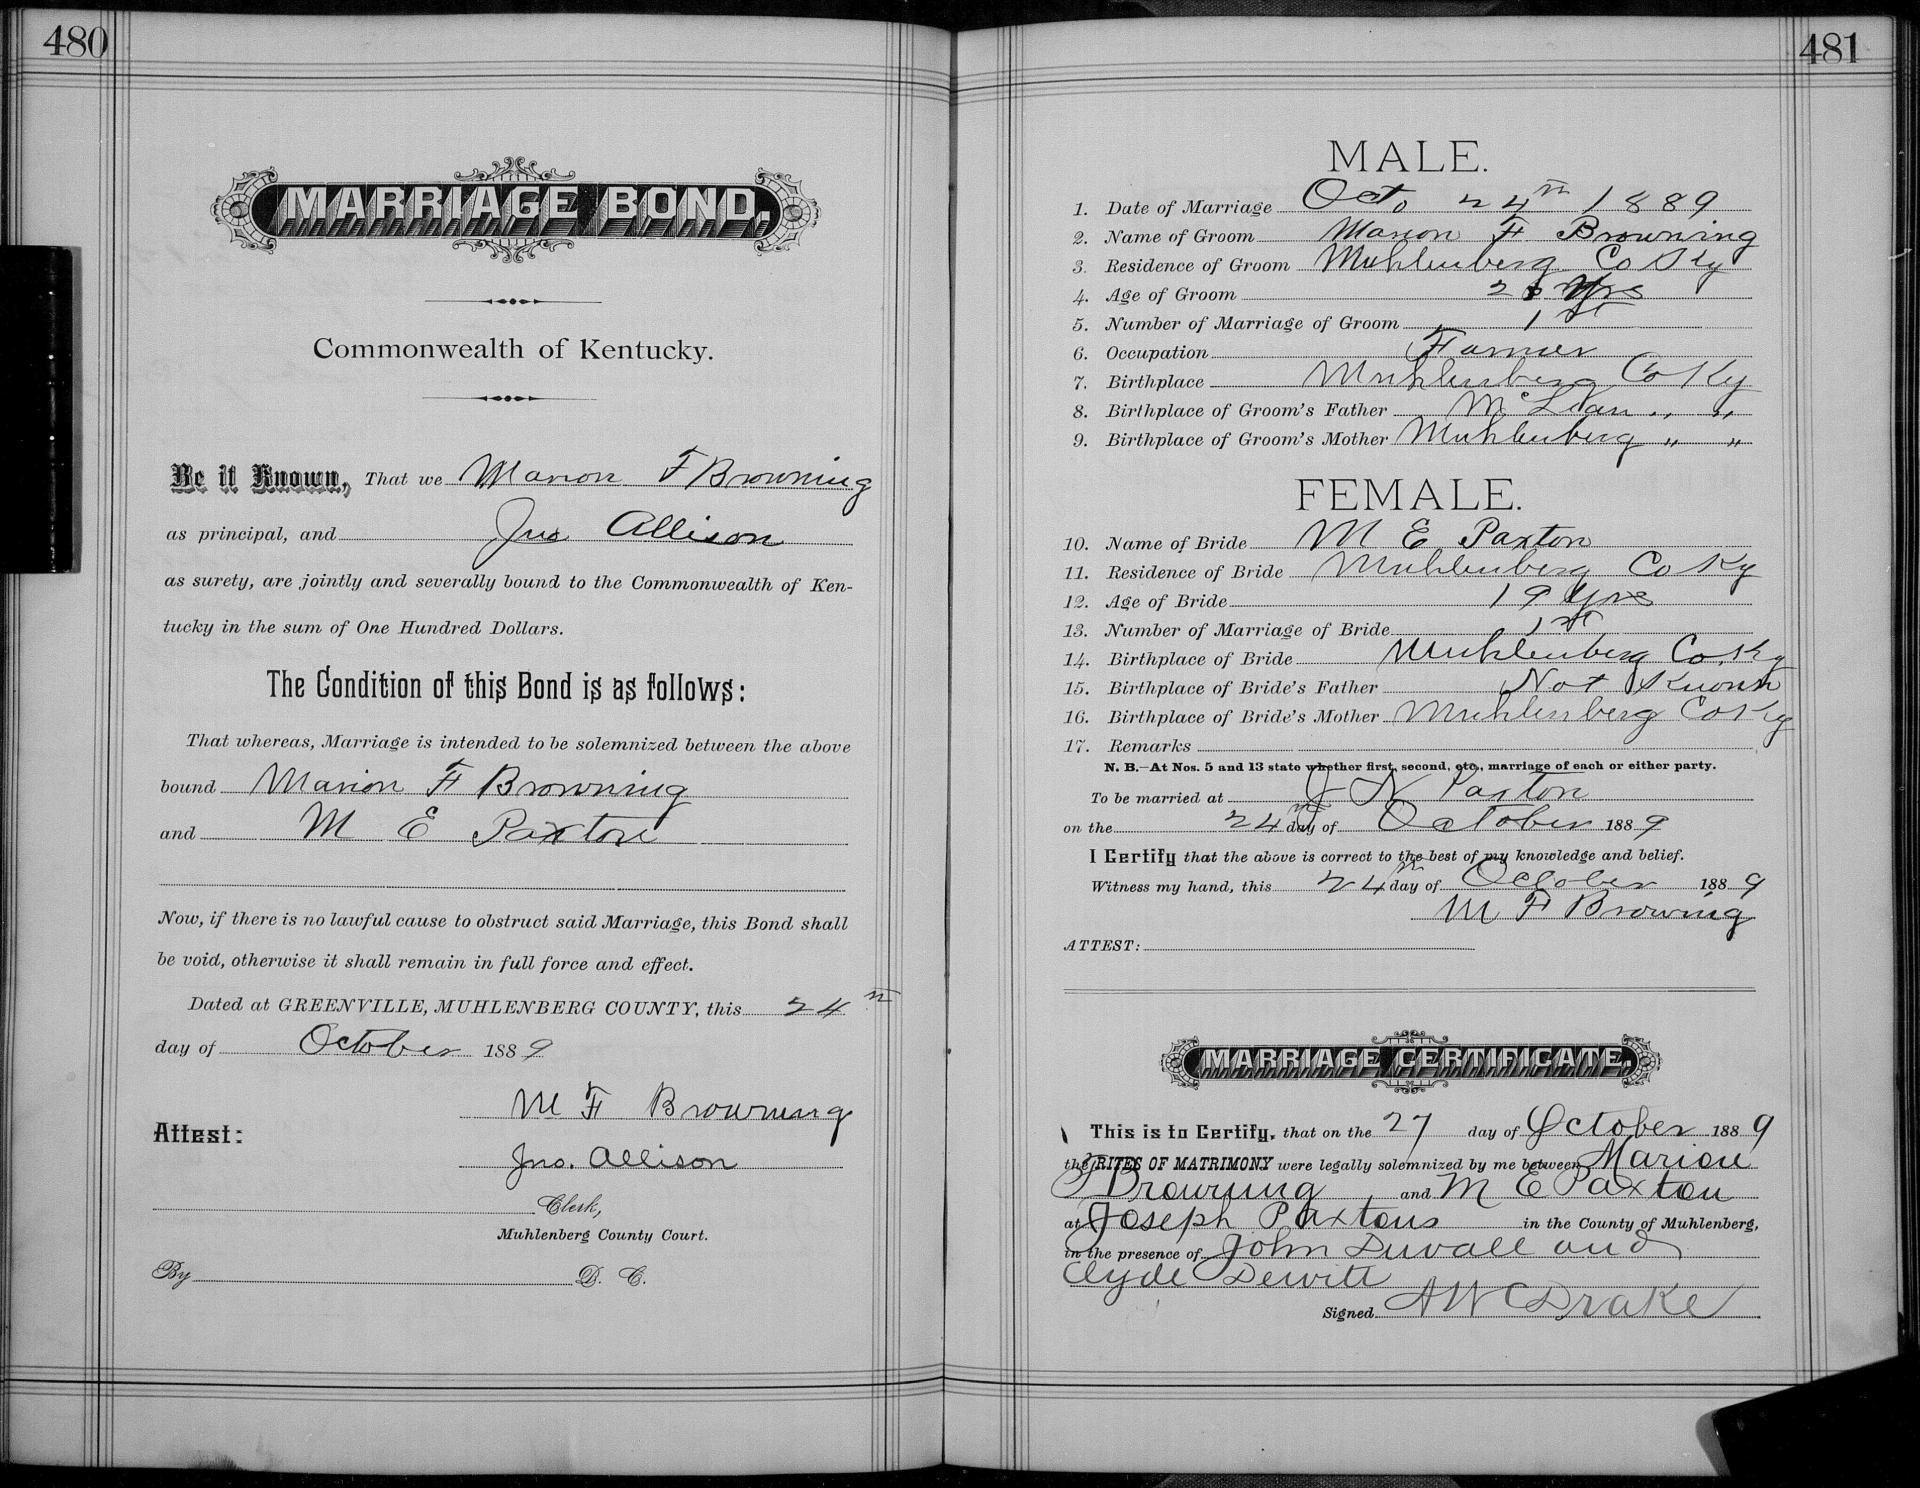 480
MARRIAGE BOND.
Commonwealth of Kentucky.
Be it Known, That we Marion F Browning
as principal, and Jno Allison
as surety, are jointly and severally bound to the Commonwealth of Ken-
tucky in the sum of One Hundred Dollars.
The Condition of this Bond is as follows:
That whereas, Marriage is intended to be solemnized between the above
bound Marion F Browning
and M E Paxton
Now, if there is no lawful cause to obstruct said Marriage, this Bond shall
be void, otherwise it shall remain in full force and effect.
Dated at GREENVILLE, MUHLENBERG COUNTY, this 24th
day of October 1889
M F Browning
Attest:
Jno. Allison
Clerk,
Muhlenberg County Court.
By D. C.
481
MALE.
1. Date of Marriage Octo 24th 1889
2. Name of Groom Marion F Browning
3. Residence of Groom Muhlenberg Co Ky
4. Age of Groom Yrs
5. Number of Marriage of Groom 1st
6. Occupation Farmer
7. Birthplace Muhlenberg Co Ky
8. Birthplace of Groom's Father McLean " "
9. Birthplace of Groom's Mother Muhlenberg " "
FEMALE.
10. Name of Bride M E Paxton
11. Residence of Bride Muhlenberg Co Ky
12. Age of Bride 19 Yrs
13. Number of Marriage of Bride 1st
14. Birthplace of Bride Muhlenberg Co. Ky
15. Birthplace of Bride's Father Not Known
16. Birthplace of Bride's Mother Muhlenberg Co Ky
17. Remarks
N. B.—At Nos. 5 and 13 state whether first, second, etc., marriage of each or either party.
To be married at J N Paxton
on the 24th day of October 1889
I Certify that the above is correct to the best of my knowledge and belief.
Witness my hand, this 24th day of October 1889
M F Browing
ATTEST:
MARRIAGE CERTIFICATE.
This is to Certify, that on the 27 day of October 1889
the RITES OF MATRIMONY were legally solemnized by me between Marion
F Browning and M E Paxton
at Joseph Paxtons in the County of Muhlenberg,
in the presence of John Duvall and
Clyde Dewitt
Signed A W C Drake